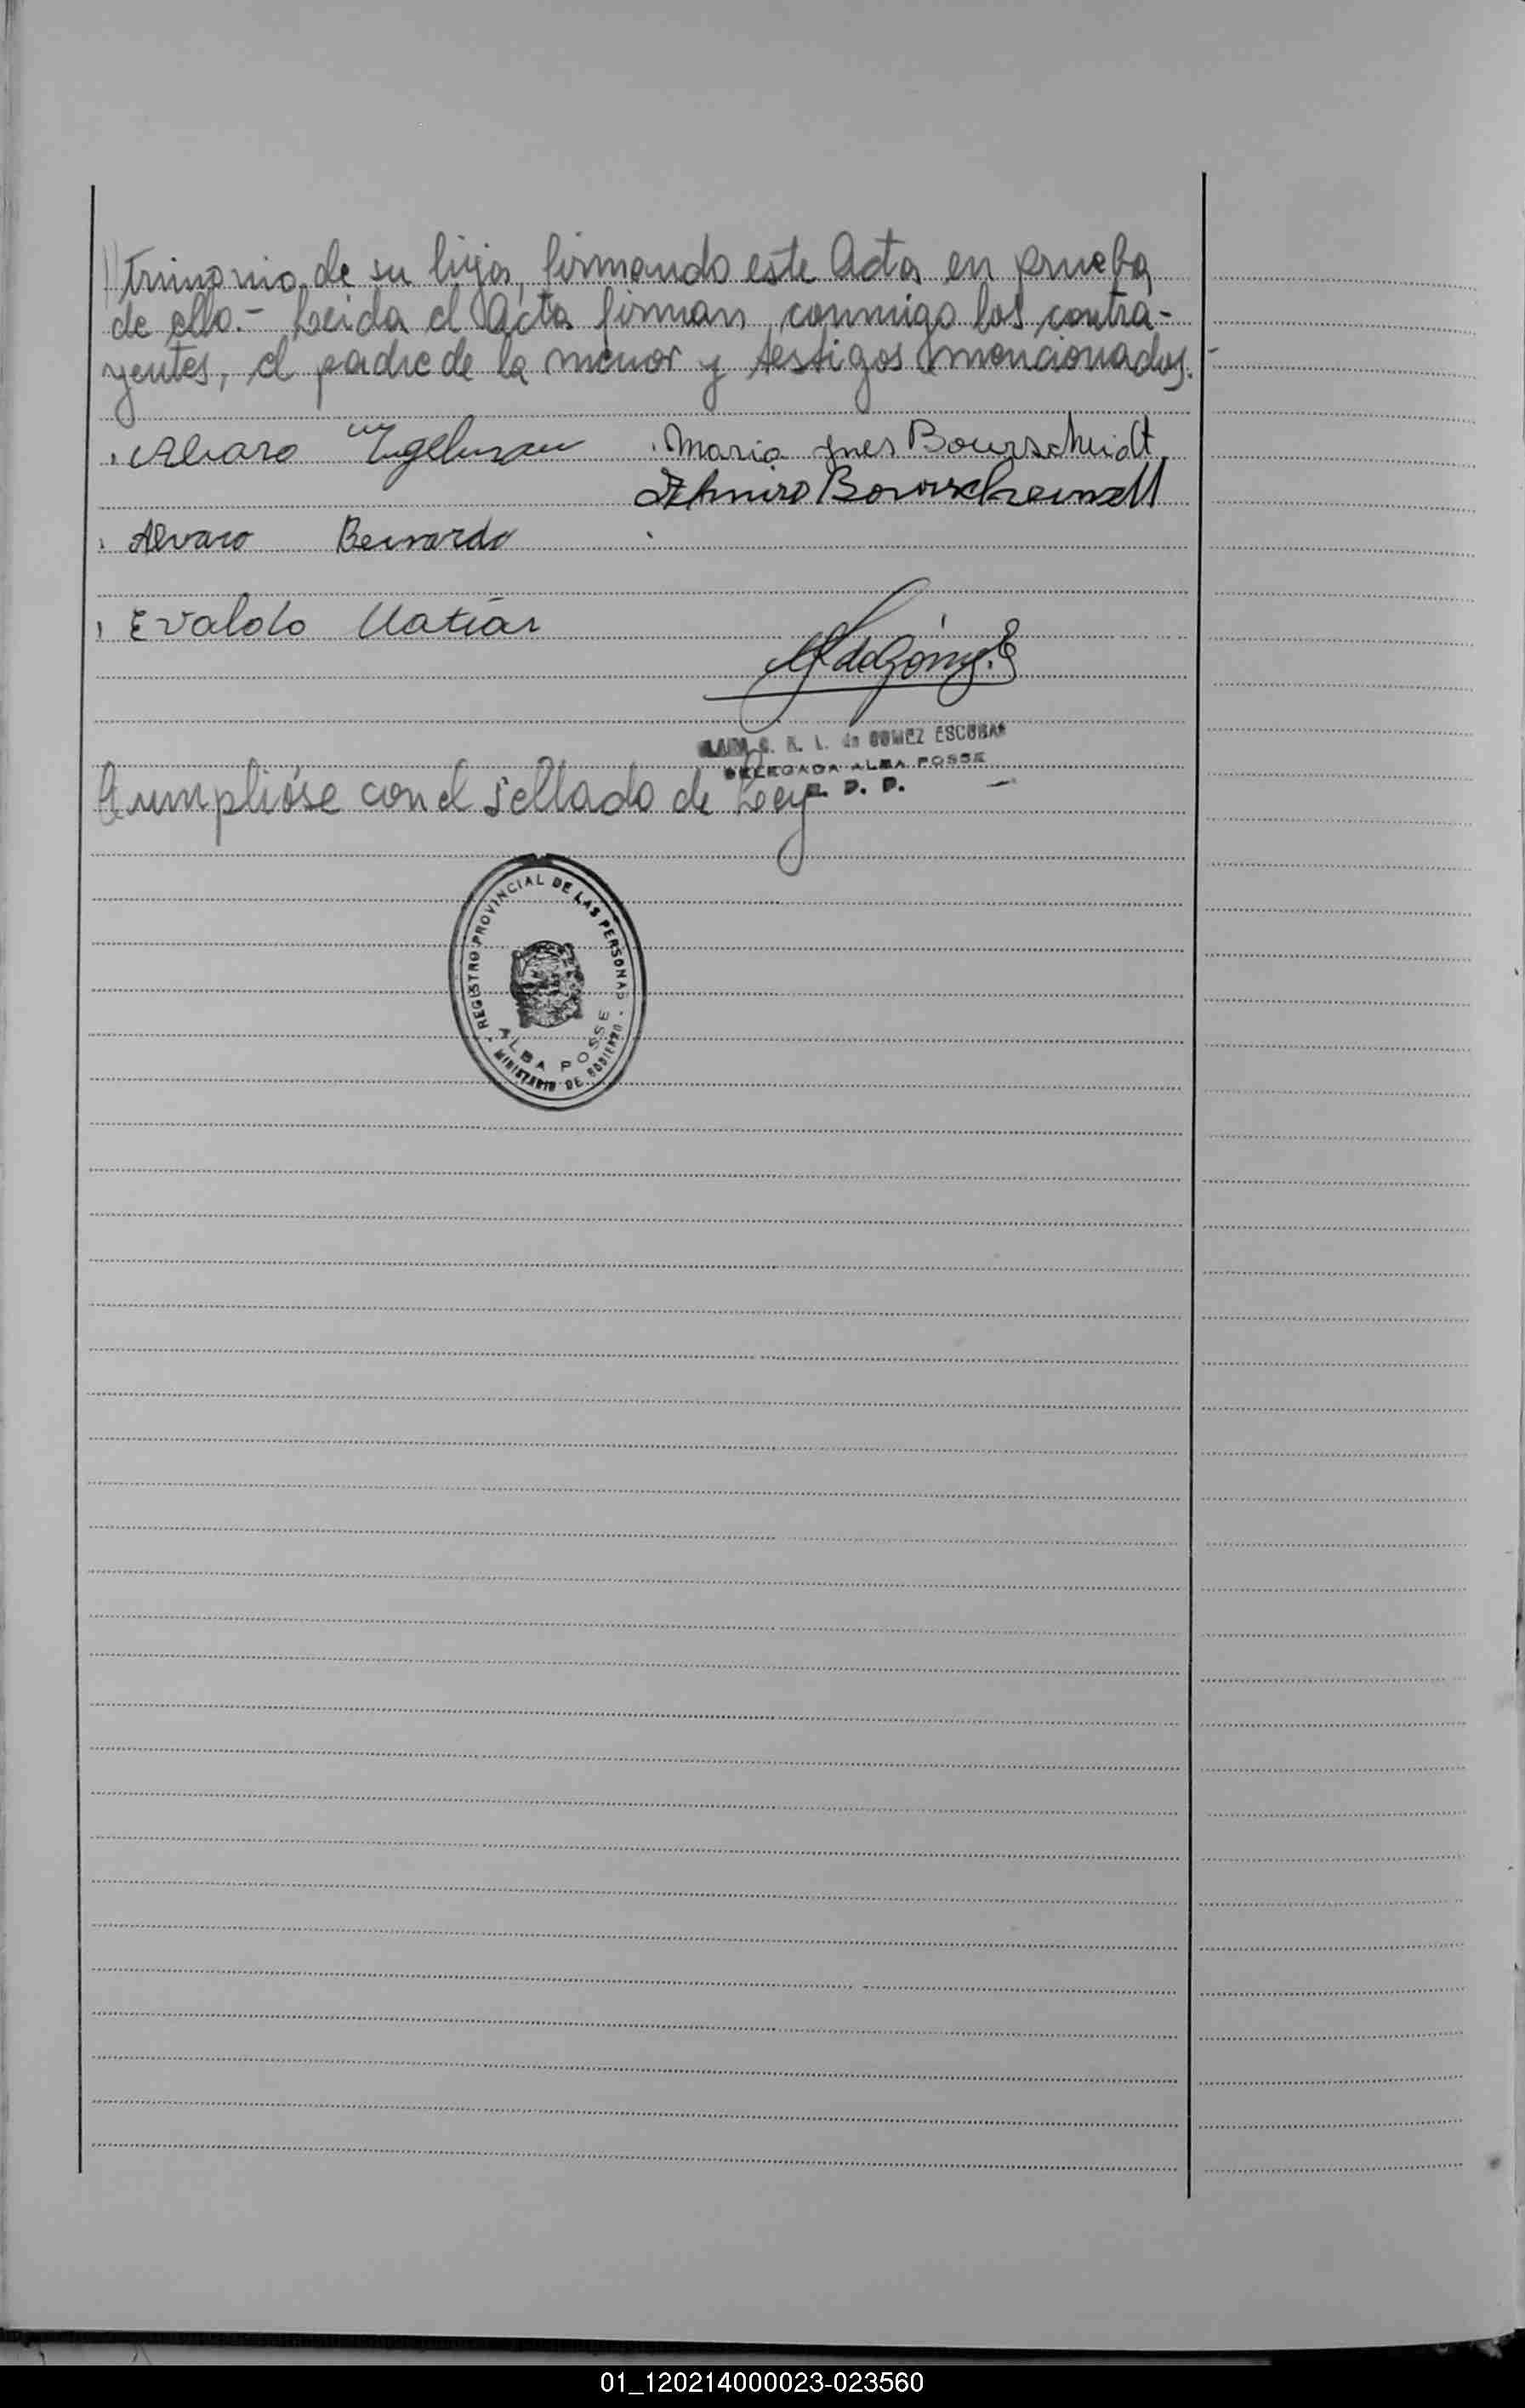 trimonio de su hija, firmando este Acta en prueba
de ello.- Leida el Acta firman conmigo los contra-
yentes, el padre de la menor y testigos mencionados.-
Alvaro Engelman Maria Ines Bourscheidt
Bourscheindt
Alvaro Bernardo
Evaldo Matias
de GOMEZ ESCOBAR
DELEGADA ALBA POSSE
R. P. P.
Cumplióse con el sellado de Ley
REGISTRO PROVINCIAL DE LAS PERSONAS
ALBA POSSE
MINISTERIO DE GOBIERNO
01_120214000023-023560